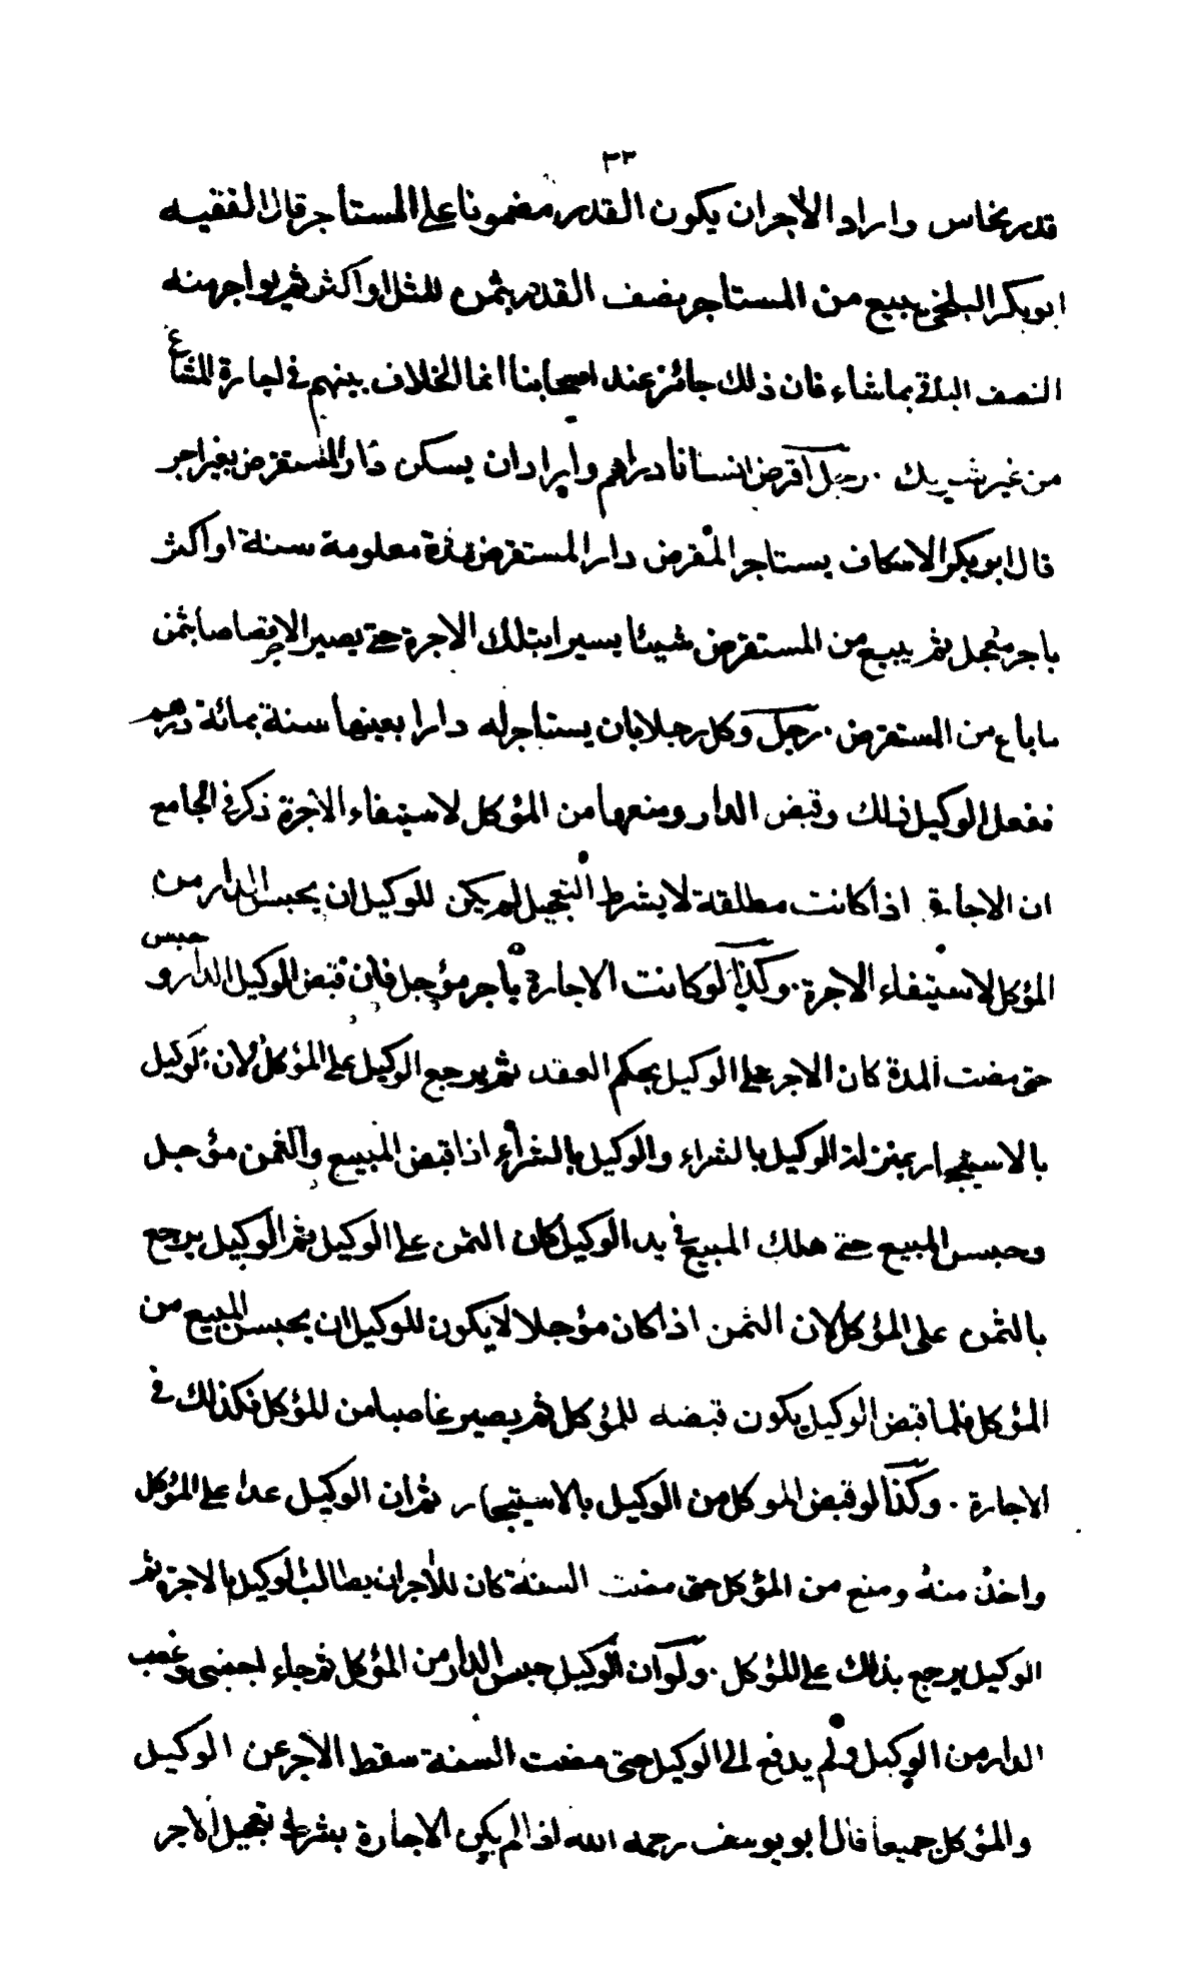 ٣٣
قدر نحاس واراد الآجر ان يكون القدر مضمونا على المستاجر قال الفقيه
ابو بكر البلخي يبيع من المستاجر نصف القدر بثمن المثل او اكثر ثم يواجر منه
النصف الباقي بما شاء فان ذلك جائز عند اصحابنا انما الخلاف بينهم في اجارة المشاع
من غير شريك . رجل اقرض انسانا دراهم واراد ان يسكن دار المستقرض بغير اجر
قال ابو بكر الاسكاف يستاجر المقرض دار المستقرض مدة معلومة سنة او اكثر
باجر معجل ثم يبيع من المستقرض شيئا يسيرا بتلك الاجرة حتى يصير الاجر قصاصا بثمن
ما باع من المستقرض . رجل وكل رجلا بان يستاجر له دارا بعينها سنة بمائة درهم
ففعل الوكيل ذلك وقبض الدار ومنعها من المؤكل لاستيفاء الاجرة ذكر في الجامع
ان الاجارة اذا كانت مطلقة لا بشرط التعجيل لم يكن للوكيل ان يحبس الدار من
المؤكل لاستيفاء الاجرة . وكذا لو كانت الاجارة باجر مؤجل فان قبض الوكيل الدار و حبس
حتى مضت المدة كان الاجر على الوكيل بحكم العقد ثم يرجع الوكيل على المؤكل لان الوكيل
بالاستيجار بمنزلة الوكيل بالشراء والوكيل بالشراء اذا قبض المبيع والثمن مؤجل
وحبس المبيع حتى هلك المبيع في يد الوكيل كان الثمن على الوكيل ثم الوكيل يرجع
بالثمن على المؤكل لان الثمن اذا كان مؤجلا لا يكون للوكيل ان يحبس المبيع من
المؤكل فلما قبض الوكيل يكون قبضه للمؤكل ثم يصير غاصبا من المؤكل فكذلك في
الاجارة . وكذا لو قبض الموكل من الوكيل بالاستيجار ثم ان الوكيل عدا على المؤكل
واخذ منه ومنع من المؤكل حتى مضت السنة كان للآجر ان يطالب الوكيل بالاجرة ثم
الوكيل يرجع بذلك على المؤكل . ولو ان الوكيل حبس الدار من المؤكل ثم جاء اجنبي وغصب
الدار من الوكيل ولم يدفع الى الوكيل حتى مضت السنة سقط الاجر عن الوكيل
والمؤكل جميعا قال ابو يوسف رحمه الله اذا لم يكن الاجارة بشرط تعجيل الاجر